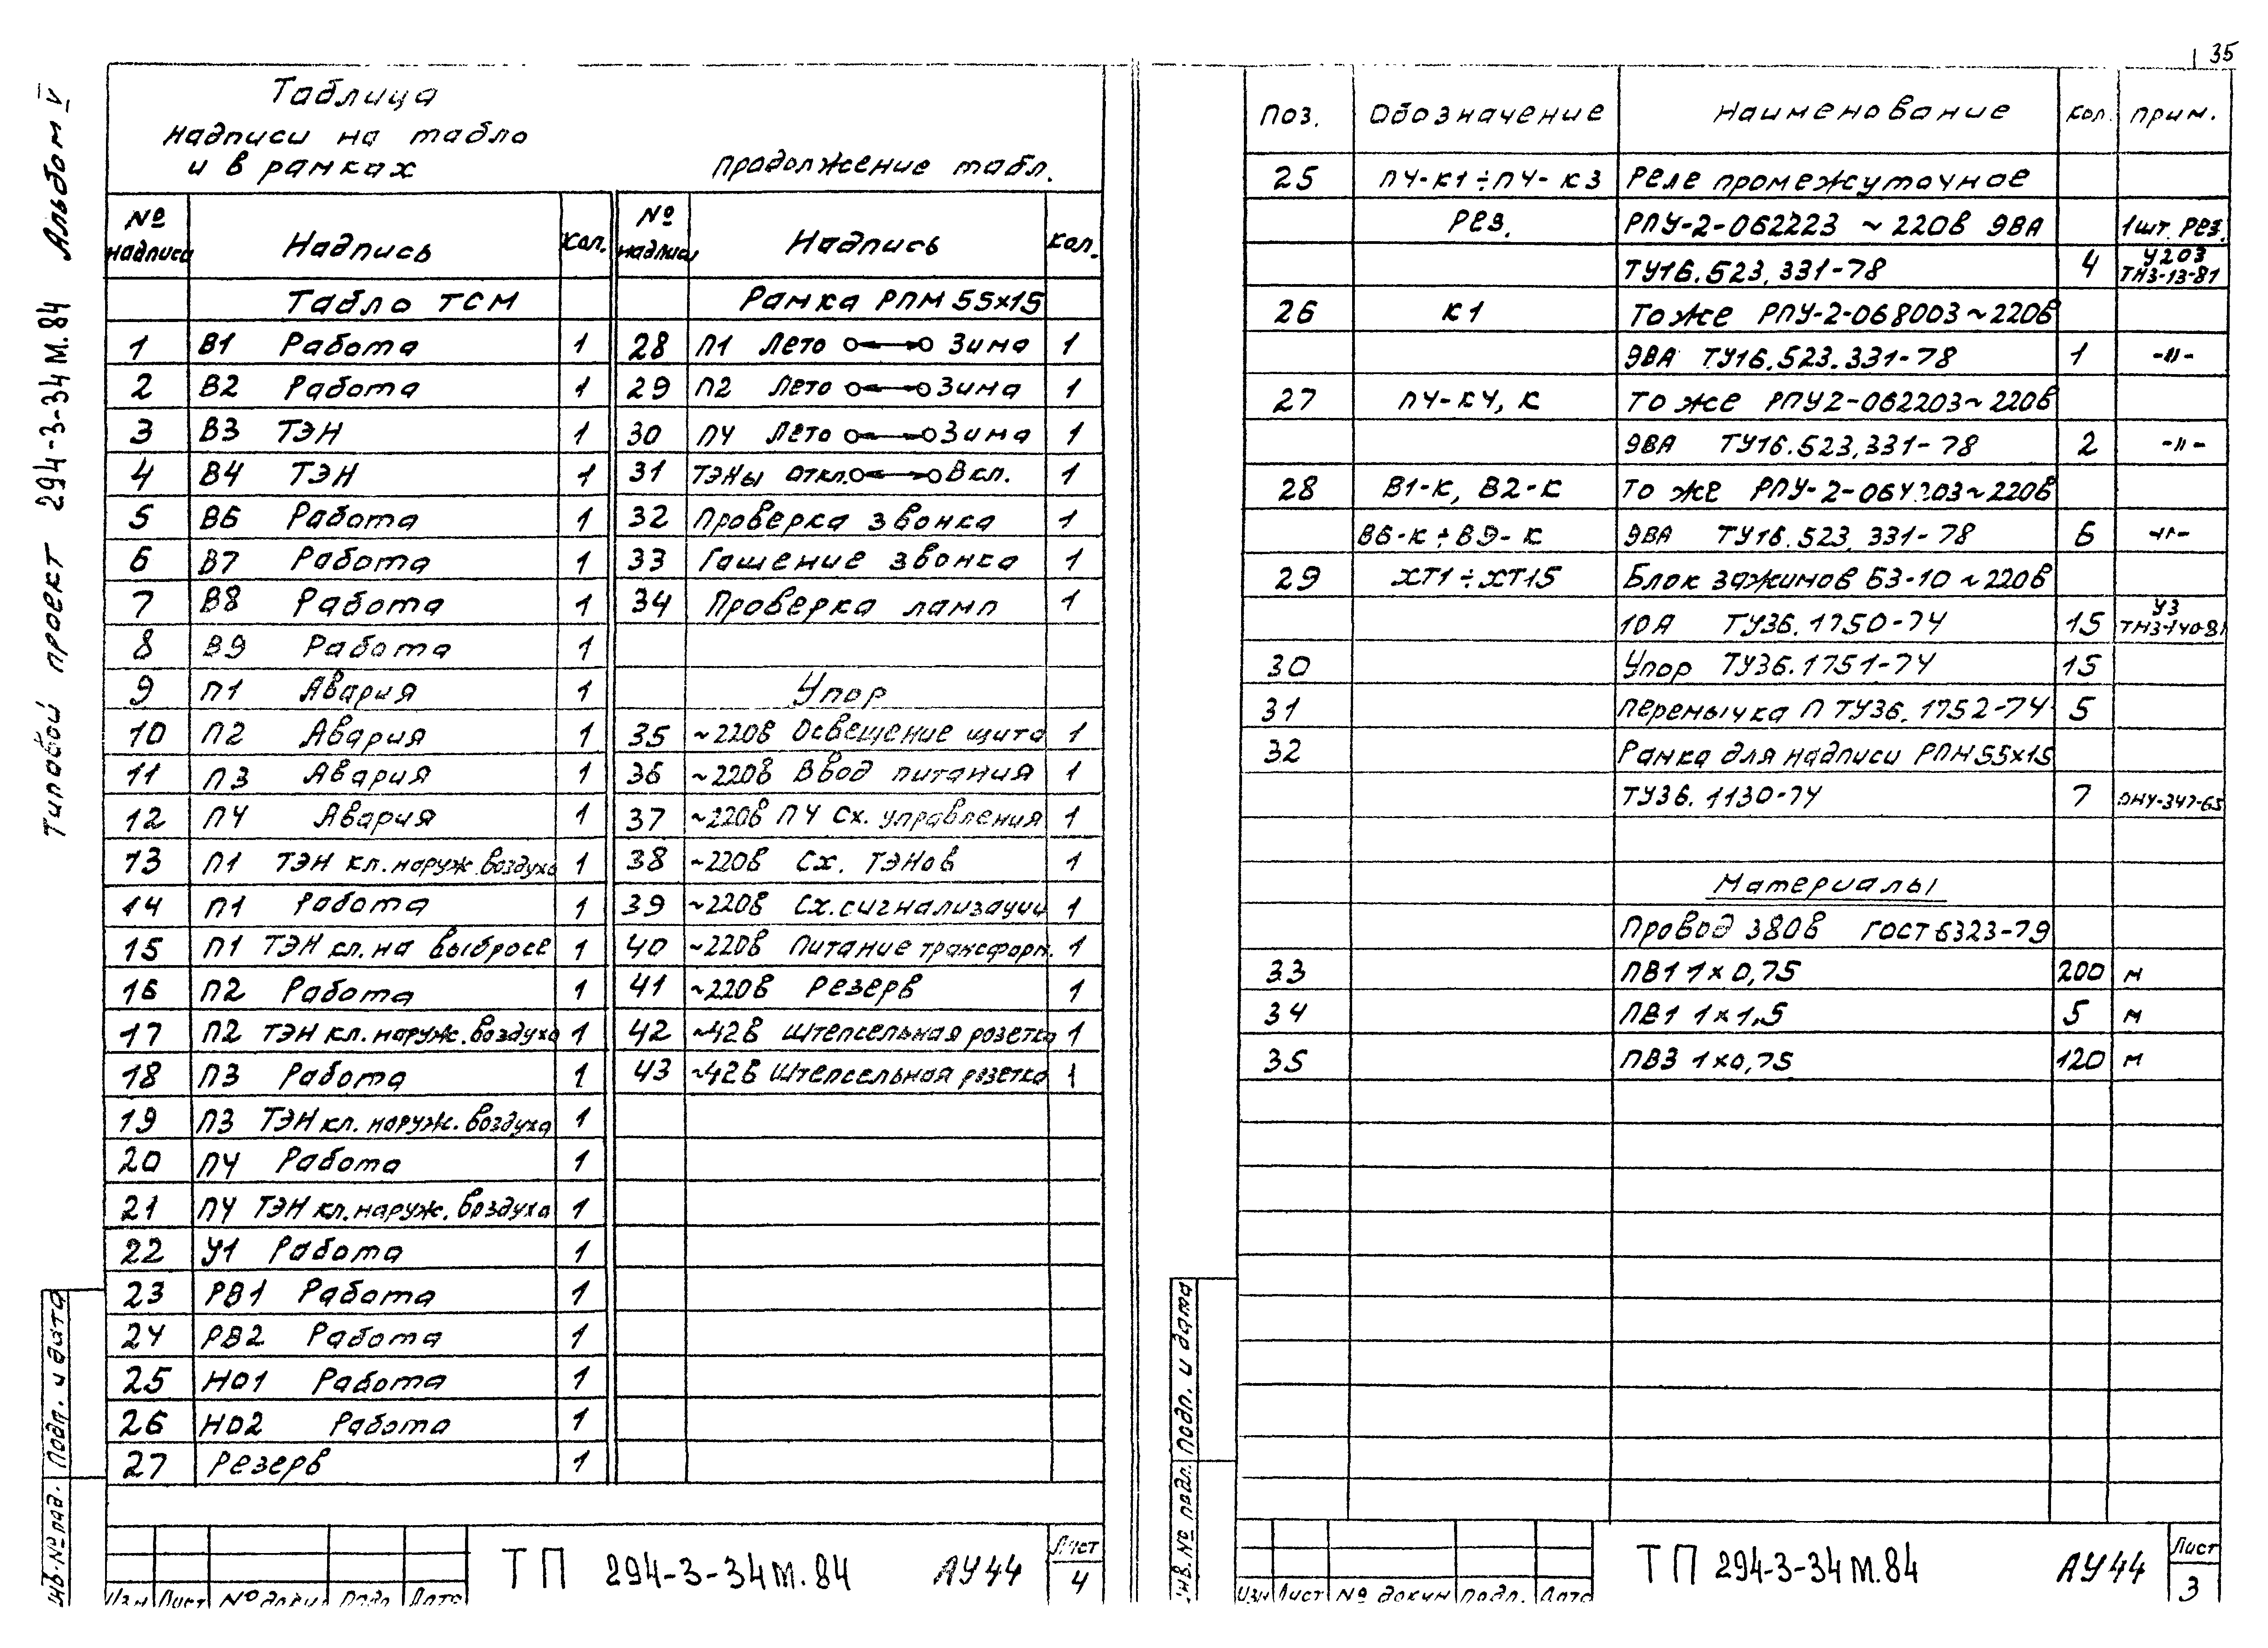 35
Типовой проект 294-3-34м.84 Альбом V
Таблица
надписи на табло
и в рамках
продолжение табл.
№ надписи Надпись кол. № надписи Надпись кол.
Табло ТСМ Рамка РПМ 55х15
1 В1 Работа 1 28 П1 Лето Зима 1
2 В2 Работа 1 29 П2 Лето Зима 1
3 В3 ТЭН 1 30 П4 Лето Зима 1
4 В4 ТЭН 1 31 ТЭНы Откл. Вкл. 1
5 В6 Работа 1 32 Проверка звонка 1
6 В7 Работа 1 33 Гашение звонка 1
7 В8 Работа 1 34 Проверка ламп 1
8 В9 Работа 1
9 П1 Авария 1 Упор
10 П2 Авария 1 35 ~220в Освещение щита 1
11 П3 Авария 1 36 ~220в Ввод питания 1
12 П4 Авария 1 37 ~220в П4 Сх. управления 1
13 П1 ТЭН кл. наруж. воздуха 1 38 ~220в Сх. ТЭНов 1
14 П1 Работа 1 39 ~220в Сх. сигнализации 1
15 П1 ТЭН кл. на выбросе 1 40 ~220в Питание трансформ. 1
16 П2 Работа 1 41 ~220в Резерв 1
17 П2 ТЭН кл. наруж. воздуха 1 42 ~42в Штепсельная розетка 1
18 П3 Работа 1 43 ~42в Штепсельная розетка 1
19 П3 ТЭН кл. наруж. воздуха 1
20 П4 Работа 1
21 П4 ТЭН кл. наруж. воздуха 1
22 У1 Работа 1
23 РВ1 Работа 1
24 РВ2 Работа 1
25 НО1 Работа 1
26 НО2 Работа 1
27 Резерв 1
Инв. № подл. Подп. и дата
Изм Лист № докум Подп. Дата
ТП 294-3-34м.84 АУ44 Лист 4
Поз. Обозначение Наименование Кол. Прим.
25 П4-К1÷П4-К3 Реле промежуточное
Рез. РПУ-2-062223 ~220в 9ВА 1шт. Рез.
ТУ16.523.331-78 4 У203 ТМ3-13-81
26 К1 То же РПУ-2-068003~220в
9ВА ТУ16.523.331-78 1 -"-
27 П4-К4, К То же РПУ2-062203~220в
9ВА ТУ16.523.331-78 2 -"-
28 В1-К, В2-К То же РПУ-2-064203~220в
В6-К÷В9-К 9ВА ТУ16.523.331-78 6 -"-
29 ХТ1÷ХТ15 Блок зажимов БЗ-10 ~220в
10А ТУ36.1750-74 15 У3 ТМ3-140-81
30 Упор ТУ36.1751-74 15
31 Перемычка П ТУ36.1752-74 5
32 Рамка для надписи РПМ55х15
ТУ36.1130-74 7
Материалы
Провод 380в ГОСТ 6323-79
33 ПВ1 1х0,75 200 м
34 ПВ1 1х1,5 5 м
35 ПВ3 1х0,75 120 м
Инв. № подл. Подп. и дата
Изм Лист № докум Подп. Дата
ТП 294-3-34м.84 АУ44 Лист 3